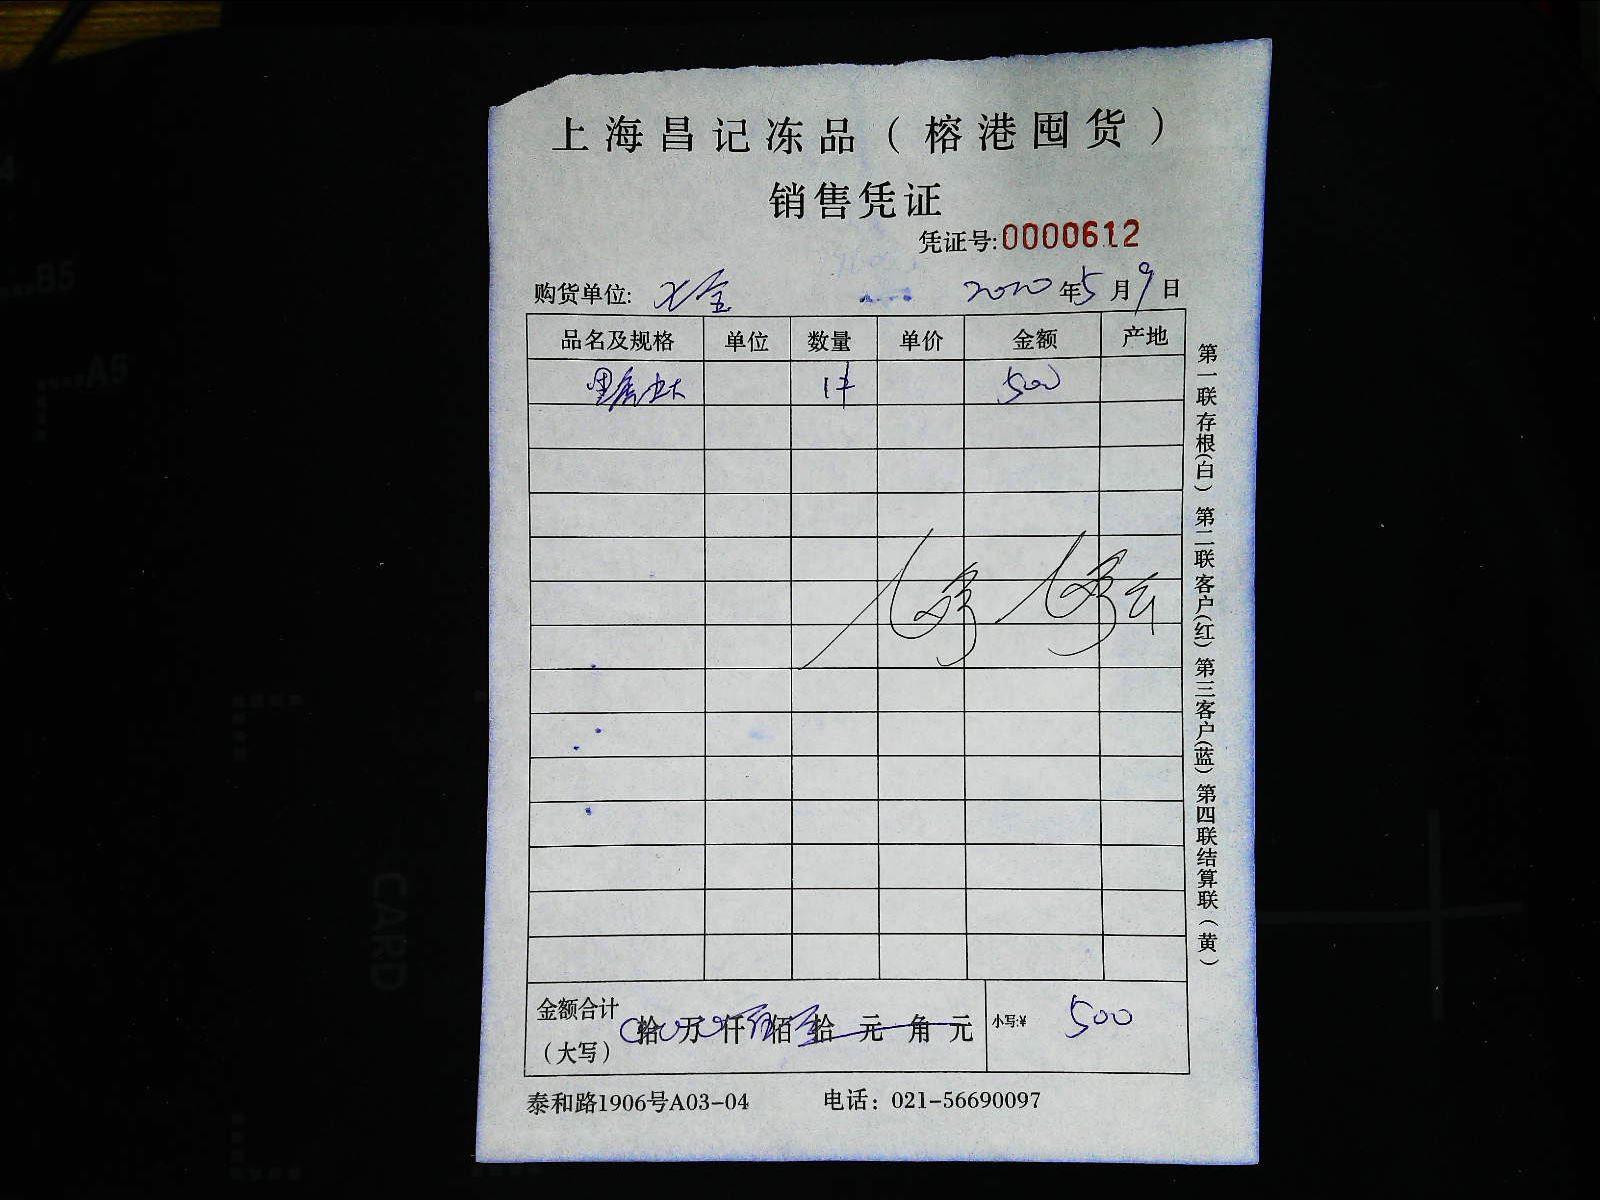 上海昌记冻品（榕港囤货）
销售凭证
凭证号:0000612
购货单位: 2020年5月9日
品名及规格 单位 数量 单价 金额 产地
1件 500
第一联存根(白) 第二联客户(红) 第三客户(蓝) 第四联结算联(黄)
金额合计
（大写） 拾 万 仟 佰 拾 元 角 元 小写:¥ 500
泰和路1906号A03-04 电话：021-56690097
B5
A5
CARD